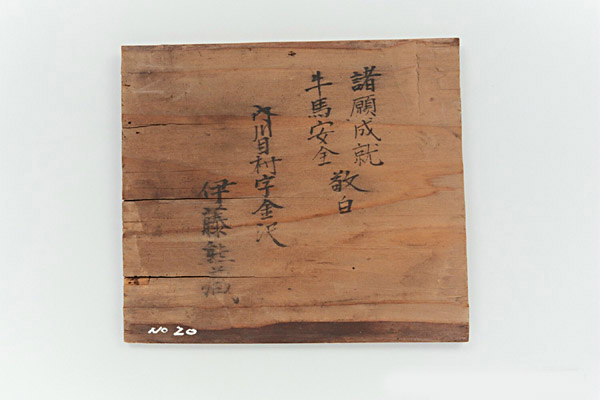 諸願成就
牛馬安全 敬白
内川目村字金沢
伊藤熊蔵
No 20